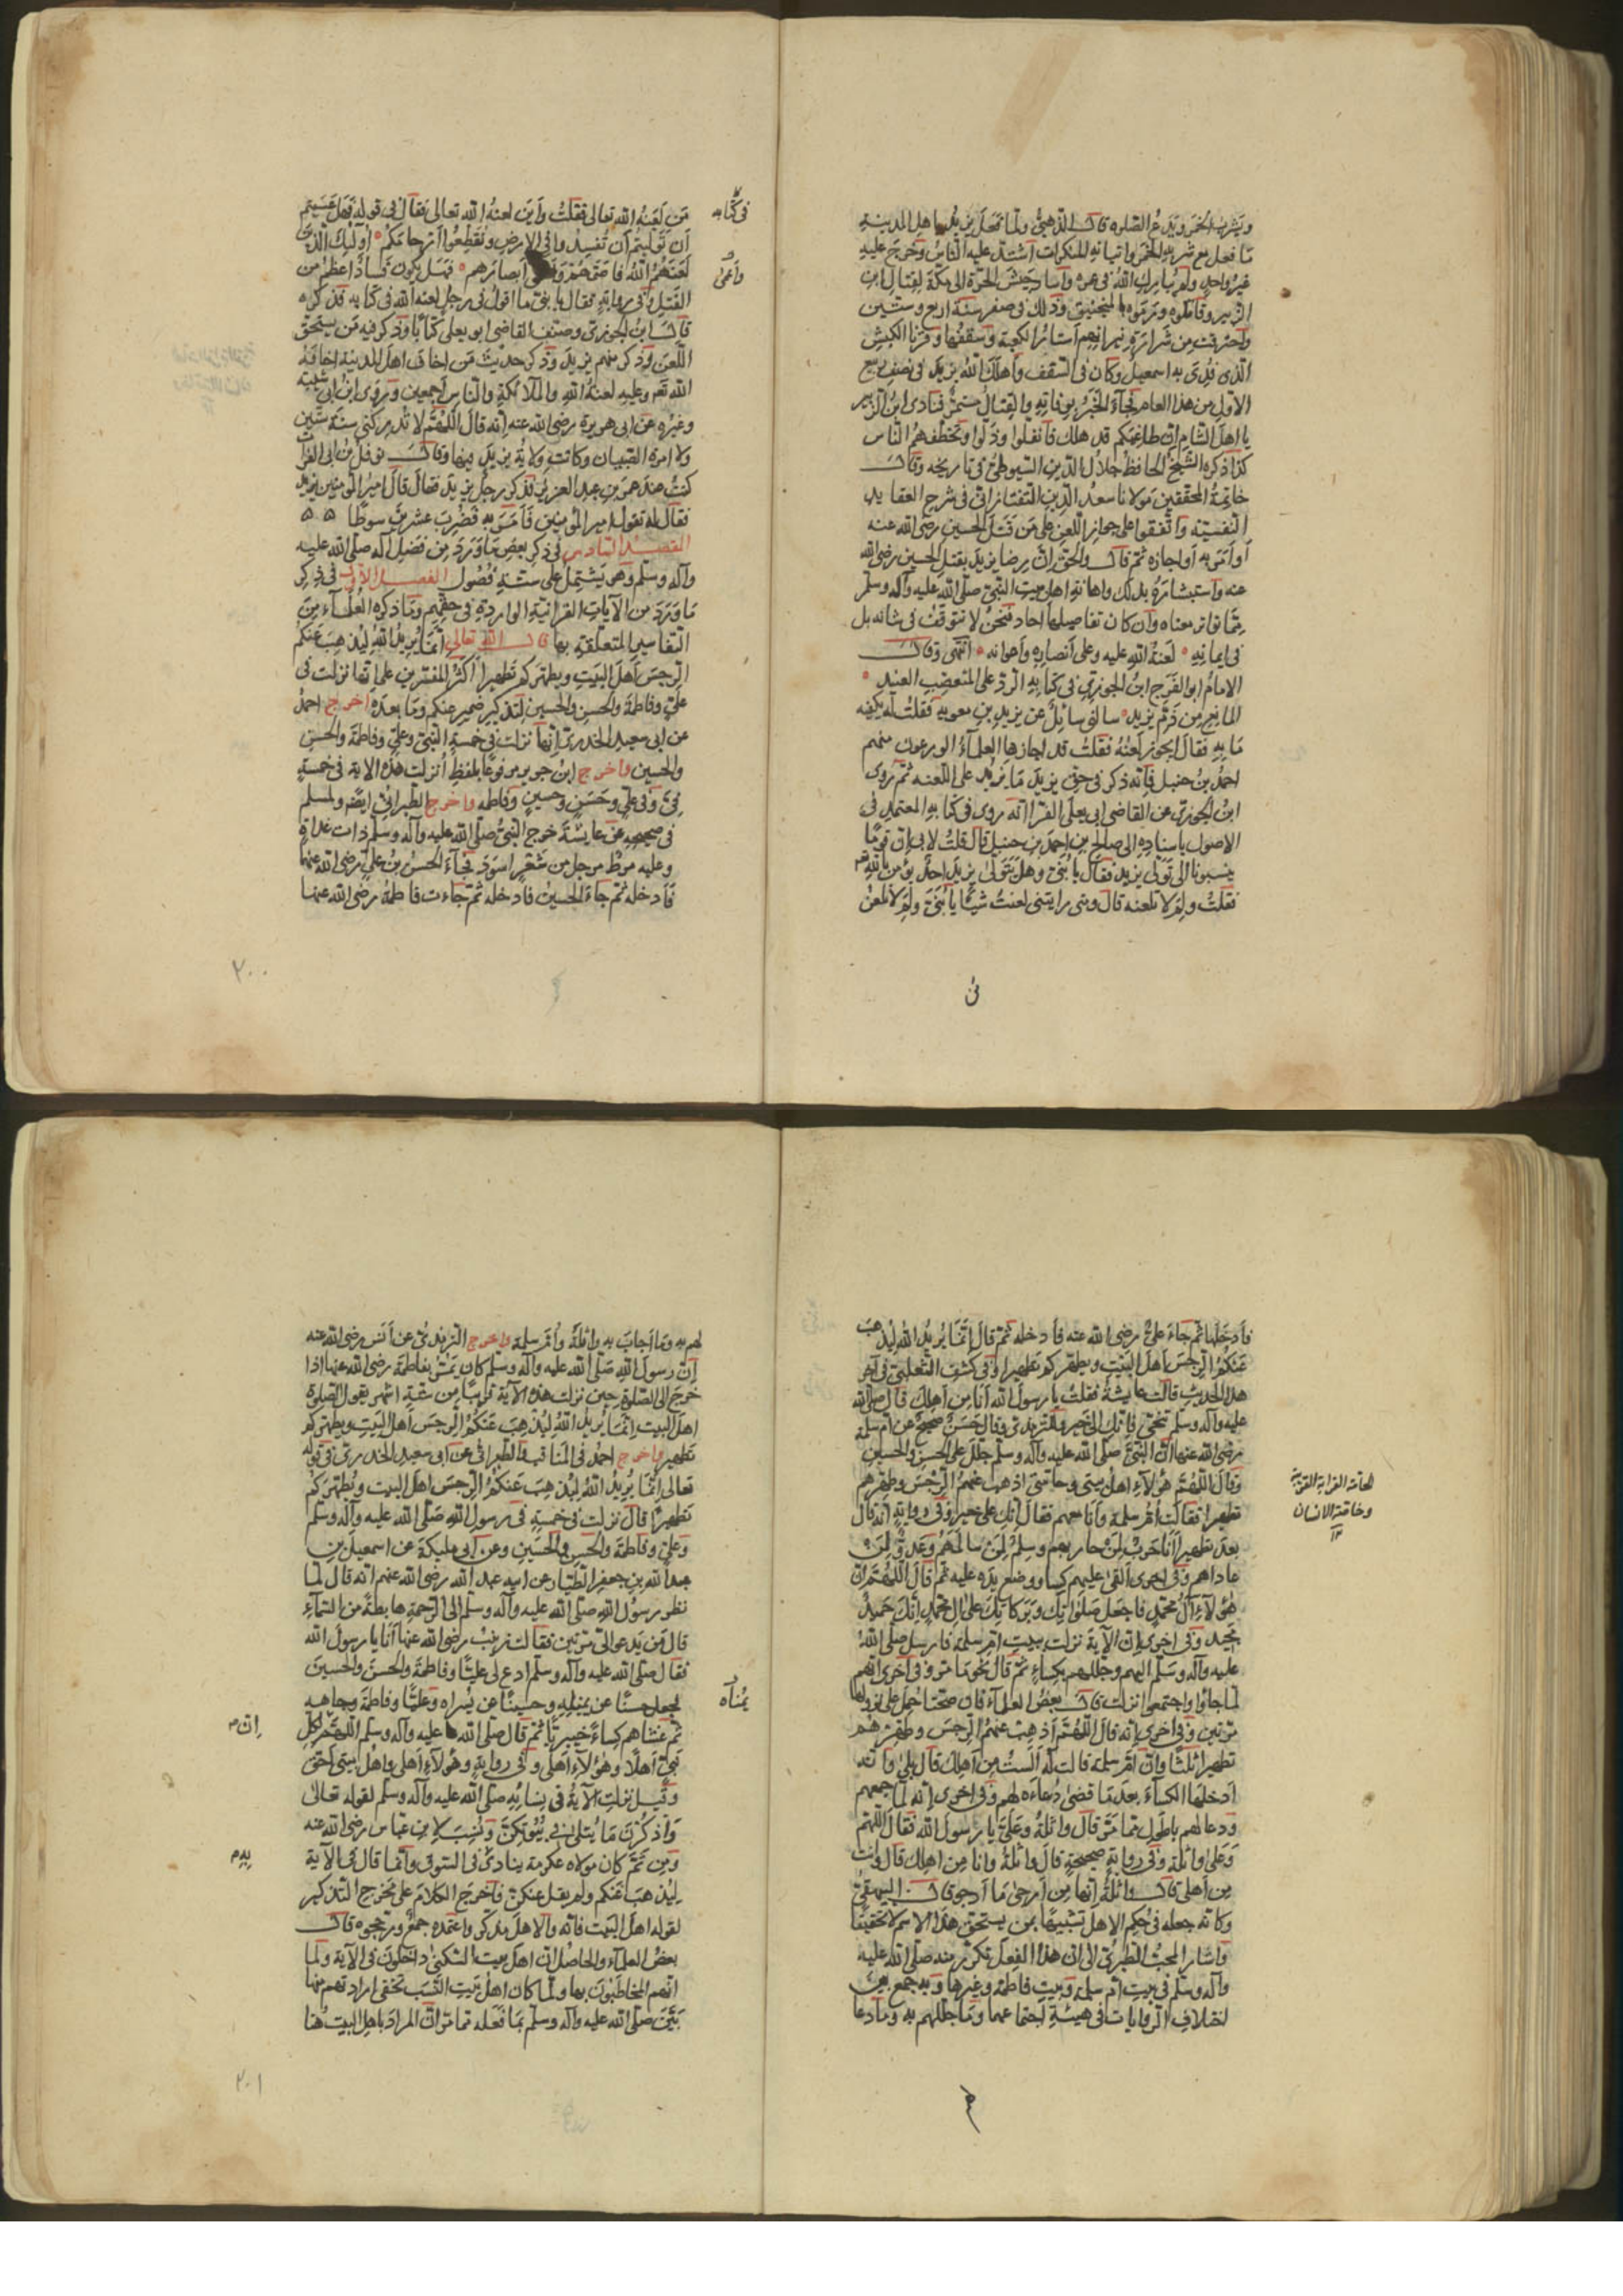 ويشرب الخمر ويدع الصلوة قال الذهبي ولما فعل يزيد باهل المدينة
ما فعل مع شربه الخمر واتيانه المنكرات اشتد عليه الناس وخرج عليه
غير واحد ولم يبارك الله في عمره وسار جيش الحرة الى مكة لقتال ابن
الزبير وقاتلوه ورموه بالمنجنيق وذلك في صفر سنة اربع وستين
واحترقت من شرارة نيرانهم استار الكعبة وسقفها وقرنا الكبش
الذي فدي به اسمعيل وكان في السقف واهلك الله يزيد في نصف ربيع
الاول من هذا العام فجاء الخبر بوفاته والقتال مستمر فنادى ابن الزبير
يا اهل الشام ان طاغيتكم قد هلك فانفلوا وذلوا وتخطفهم الناس
كذا ذكره الشيخ الحافظ جلال الدين السيوطي في تاريخه وقال
خاتمة المحققين مولانا سعد الدين التفتازاني في شرح العقايد
النفسية واتفقوا على جواز اللعن على من قتل الحسين رضي الله عنه
او امر به او اجازه ثم قال والحق ان رضا يزيد بقتل الحسين رضي الله
عنه واستبشاره بذلك واهانة اهل بيت النبي صلى الله عليه وآله وسلم
مما تواتر معناه وان كان تفاصيلها احاد فنحن لا نتوقف في شانه بل
في ايمانه لعنة الله عليه وعلى أنصاره وأعوانه انتهى وقال
الامام ابو الفرج ابن الجوزي في كتابه الرد على المتعصب العنيد
المانع من ذم يزيد سالني سائل عن يزيد بن معويه فقلت له يكفيه
ما به فقال ايجوز لعنه فقلت قد اجازها العلماء الورعون منهم
احمد بن حنبل فانه ذكر في حق يزيد ما يزيد على اللعنه ثم روى
ابن الجوزي عن القاضي ابي يعلى الفرا انه روى في كتابه المعتمد في
الاصول باسناده الى صالح بن احمد بن حنبل قال قلت لابي ان قوما
ينسبونا الى تولى يزيد فقال يا بني وهل يتولى يزيد احد يؤمن بالله
فقلت ولم لا تلعنه قال ومتى رايتني لعنت شيئا يا بني ولم لا تلعن
في كتابه
واعمى
من لعنه الله تعالى فقلت واين لعنه الله تعالى فقال في قوله فهل عسيتم
ان توليتم ان تفسدوا في الارض وتقطعوا ارحامكم اولئك الذين
لعنهم الله فاصمهم ابصارهم فهل يكون فساد اعظم من
القتل وفي رواية فقال يا بني ما اقول في رجل لعنه الله في كتابه فذكره
قال ابن الجوزي وصنف القاضي ابو يعلى كتابا وذكر فيه من يستحق
اللعن وذكر منهم يزيد وذكر حديث من اخاف اهل المدينة اخافه
الله وعليه لعنة الله والملائكة والناس اجمعين وروى ابن ابي شيبة
وغيره عن ابي هريرة رضي الله عنه انه قال اللهم لا تدركني سنة ستين
ولا امرة الصبيان وكانت ولاية يزيد فيها وقال نوفل بن ابي الفرات
كنت عند عمر بن عبد العزيز فذكر رجل يزيد فقال قال امير المؤمنين يزيد
فقال له تقول امير المؤمنين فامر به فضرب عشرين سوطا
الفصل السادس في ذكر بعض ما ورد من فضل آله صلى الله عليه
وآله وسلم وهو يشتمل على ستة فصول الفصل الاول في ذكر
ما ورد من الآيات القرانية الواردة في حقهم وما ذكره العلماء من
التفاسير المتعلقة بها قال الله تعالى انما يريد الله ليذهب عنكم
الرجس اهل البيت ويطهركم تطهيرا اكثر المفسرين على انها نزلت في
علي وفاطمة والحسن والحسين لتذكير ضمير عنكم وما بعده اخرج احمد
عن ابي سعيد الخدري انها نزلت في خمسة النبي وعلي وفاطمة والحسن
والحسين واخرج ابن جرير مرفوعا بلفظ انزلت هذه الاية في خمسة
في وفي علي وحسن وحسين وفاطمه واخرج الطبراني ايضا ولمسلم
في صحيحه عن عايشة خرج النبي صلى الله عليه وآله وسلم ذات غداة
وعليه مرط مرجل من شعر اسود فجاء الحسن بن علي رضي الله عنهما
فادخله ثم جاء الحسين فادخله ثم جاءت فاطمة رضي الله عنها
٢٠٠
فادخلها ثم جاء علي رضي الله عنه فادخله ثم قال انما يريد الله ليذهب
عنكم الرجس اهل البيت ويطهركم تطهيرا وفي كشف الثعلبي في آخر
هذا الحديث قالت عايشة فقلت يا رسول الله انا من اهلك قال صلى الله
عليه وآله وسلم تنحي فانك الى خير وللترمذي وقال حسن صحيح عن ام سلمة
رضي الله عنها ان النبي صلى الله عليه وآله وسلم جلل على الحسن والحسين
وقال اللهم هؤلاء اهل بيتي وحامتي اذهب عنهم الرجس وطهرهم
تطهيرا فقالت ام سلمة وانا معهم فقال انك على خير وفي رواية انه قال
بعد تطهيرا انا حرب لمن حاربهم وسلم لمن سالمهم وعدو لمن
عاداهم وفي اخرى القى عليهم كساء ووضع يده عليه ثم قال اللهم ان
هؤلاء آل محمد فاجعل صلواتك وبركاتك على ال محمد انك حميد
مجيد وفي اخرى ان الآية نزلت ببيت ام سلمة فارسل صلى الله
عليه وآله وسلم اليهم وجللهم بكساء ثم قال نحو ما مر وفي أخرى انهم
لما جاؤا واجتمعوا نزلت قال بعض العلماء فان صحتا حمل على نزولها
مرتين وفي اخرى انه قال اللهم اذهب عنهم الرجس وطهرهم
تطهيرا ثلثا وان ام سلمة قالت له الست من اهلك قال بلى وانه
ادخلها الكساء بعد ما قضى دعاءه لهم وفي اخرى انه لما جمعهم
ودعا لهم باطول مما مر قال واثلة وعلي يا رسول الله فقال اللهم
وعلى واثلة وفي رواية صحيحة قال واثلة وانا من اهلك قال وانت
من اهلي قال واثلة انها من ارجى ما ارجو قال البيهقي
وكانه جعله في حكم الاهل تشبيها بمن يستحق هذا الاسم لا تحقيقا
واشار المحب الطبري الى ان هذا الفعل تكرر منه صلى الله عليه
وآله وسلم في بيت ام سلمة وبيت فاطمة وغيرها وبه جمع بين
اختلاف الروايات في هيئة اجتماعهما وما جللهم به وما دعا
وخاصة الانسان
لهم به وما اجاب به واثلة وام سلمة واخرج الترمذي عن انس رضي الله عنه
ان رسول الله صلى الله عليه وآله وسلم كان يمر بفاطمة رضي الله عنها اذا
خرج الى الصلوة حين نزلت هذه الآية قريبا من ستة اشهر يقول الصلوة
اهل البيت انما يريد الله ليذهب عنكم الرجس اهل البيت ويطهركم
تطهيرا واخرج احمد في المناقب والطبراني عن ابي سعيد الخدري في قوله
تعالى انما يريد الله ليذهب عنكم الرجس اهل البيت ويطهركم
تطهيرا قال نزلت في خمسة في رسول الله صلى الله عليه وآله وسلم
وعلي وفاطمة والحسن والحسين وعن ابي مليكة عن اسمعيل بن
عبد الله بن جعفر الطيار عن ابيه عبد الله رضي الله عنهم انه قال لما
نظر رسول الله صلى الله عليه وآله وسلم الى الرحمة هابطة من السماء
قال من يدعو الي مرتين فقالت زينب رضي الله عنها انا يا رسول الله
فقال صلى الله عليه وآله وسلم ادع لي عليا وفاطمة والحسن والحسين
فجعل حسنا عن يمينه وحسينا عن يسراه وعليا وفاطمة وجاهه
ثم غشاهم كساء خيبريا ثم قال صلى الله عليه وآله وسلم اللهم لكل
نبي اهلا وهؤلاء اهلي وفي رواية وهؤلاء اهلي واهل بيتي احق
وقيل نزلت الآية في نسائه صلى الله عليه وآله وسلم لقوله تعالى
واذكرن ما يتلى في بيوتكن ونسب لابن عباس رضي الله عنه
ومن ثم كان مولاه عكرمة ينادي في السوق وانما قال في الآية
ليذهب عنكم ولم يقل عنكن فاخرج الكلام على مخرج التذكير
لقوله اهل البيت فانه والاهل مذكر واعتمده جمع ورجحوه قال
بعض العلماء والحاصل ان اهل بيت السكنى داخلون في الآية ولما
انهم المخاطبون بها ولما كان اهل بيت النسب تخفى ارادتهم منها
بين صلى الله عليه وآله وسلم بما فعله مما مر ان المراد باهل البيت هنا
يمناه
ان م
به م
٢٠١